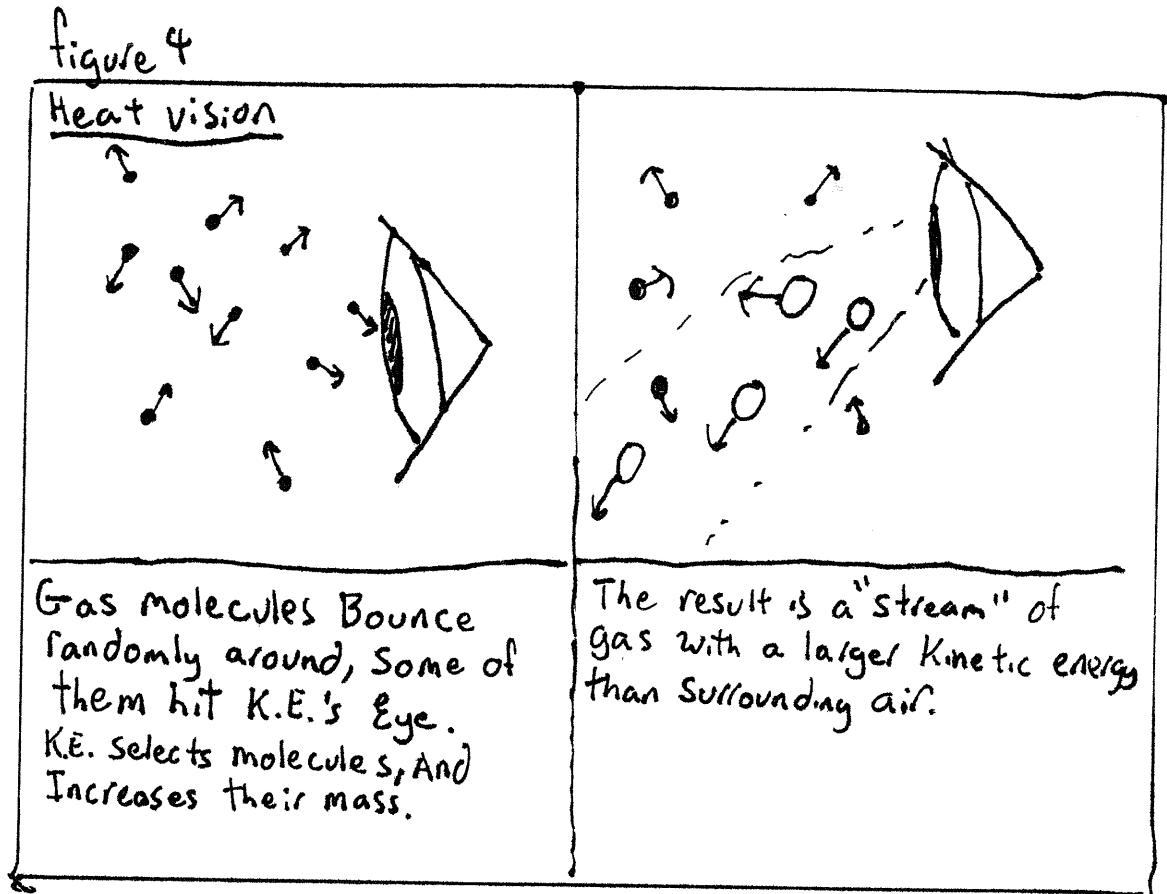 figure 4
Heat vision
Gas molecules Bounce
randomly around, Some of
them hit K.E.'s Eye.
K.E. Selects molecules, And
Increases their mass.
The result is a "stream" of
gas with a larger Kinetic energy
than Surrounding air.